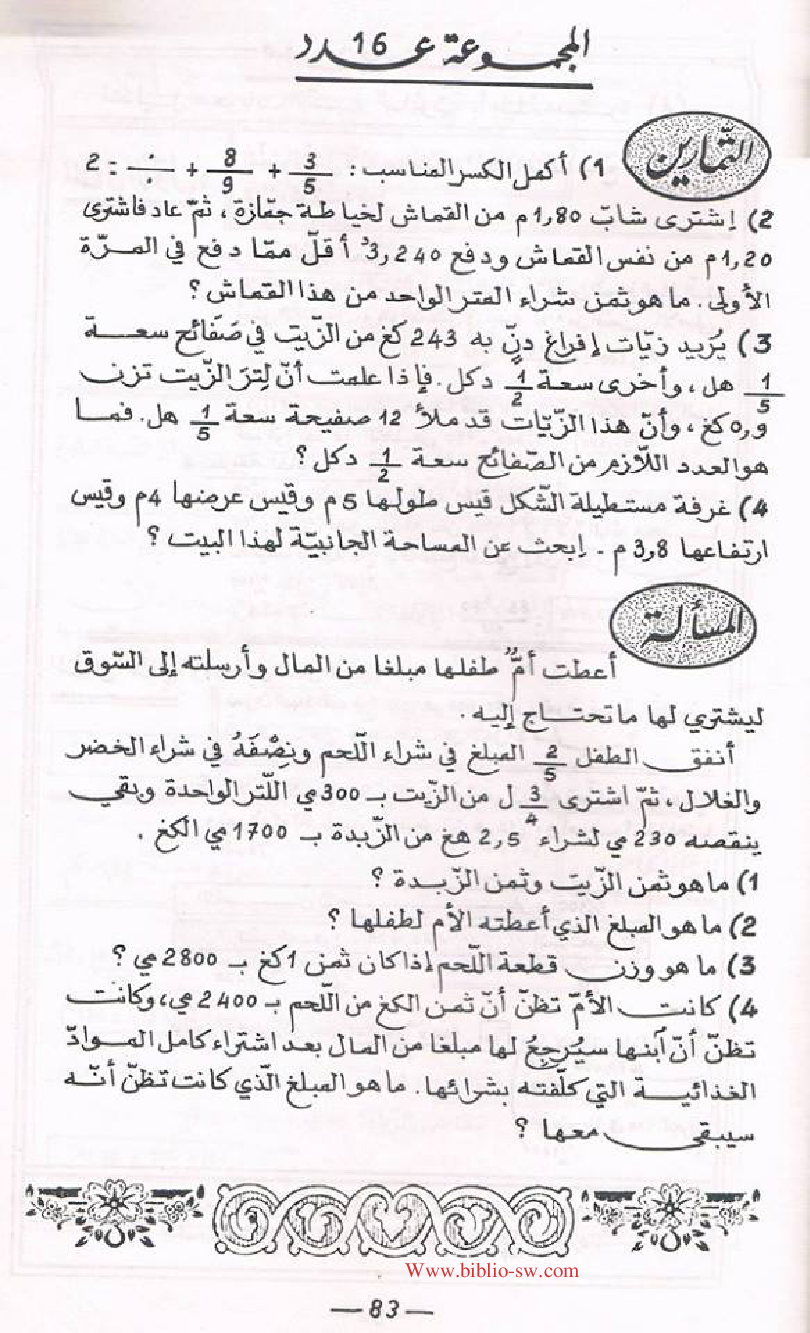 المجموعة عدد 16
التمارين
1) أكمل الكسر المناسب: 3/5 + 8/9 + ./. = 2
2) إشترى شابّ 1,80م من القماش لخياطة جمّازة، ثمّ عاد فاشترى
1,20م من نفس القماش ودفع 3,240د أقلّ ممّا دفع في المرّة
الأولى. ما هو ثمن شراء المتر الواحد من هذا القماش؟
3) يُريد زيّات إفراغ دنّ به 243 كغ من الزّيت في صَفائح سعة
1/5 هل، وأخرى سعة 1/2 دكل. فإذا علمت أنّ لِترَ الزّيت تزن
0,9 كغ، وأنّ هذا الزّيّات قد ملأ 12 صفيحة سعة 1/5 هل. فما
هو العدد اللّازم من الصّفائح سعة 1/2 دكل؟
4) غرفة مستطيلة الشّكل قيس طولها 5م وقيس عرضها 4م وقيس
ارتفاعها 3,8 م. إبحث عن المساحة الجانبيّة لهذا البيت؟
المسألة
أعطت أمٌّ طفلها مبلغا من المال وأرسلته إلى السّوق
ليشتري لها ما تحتاج إليه.
أنفق الطفل 2/5 المبلغ في شراء اللّحم ونِصْفَهُ في شراء الخضر
والغلال، ثمّ اشترى 3/4 ل من الزّيت بـ 300مي اللّتر الواحدة وبقي
ينقصه 230مي لشراء 2,5 هغ من الزّبدة بـ 1700مي الكغ.
1) ما هو ثمن الزّيت وثمن الزّبدة؟
2) ما هو المبلغ الذي أعطته الأم لطفلها؟
3) ما هو وزن قطعة اللّحم إذا كان ثمن 1كغ بـ 2800مي؟
4) كانت الأمّ تظنّ أنّ ثمن الكغ من اللّحم بـ 2400مي، وكانت
تظنّ أنّ آبنها سيُرجِعُ لها مبلغا من المال بعد اشتراء كامل الموادّ
الغذائية التي كلّفته بشرائها. ما هو المبلغ الّذي كانت تظنّ أنّه
سيبقى معها؟
Www.biblio-sw.com
— 83 —